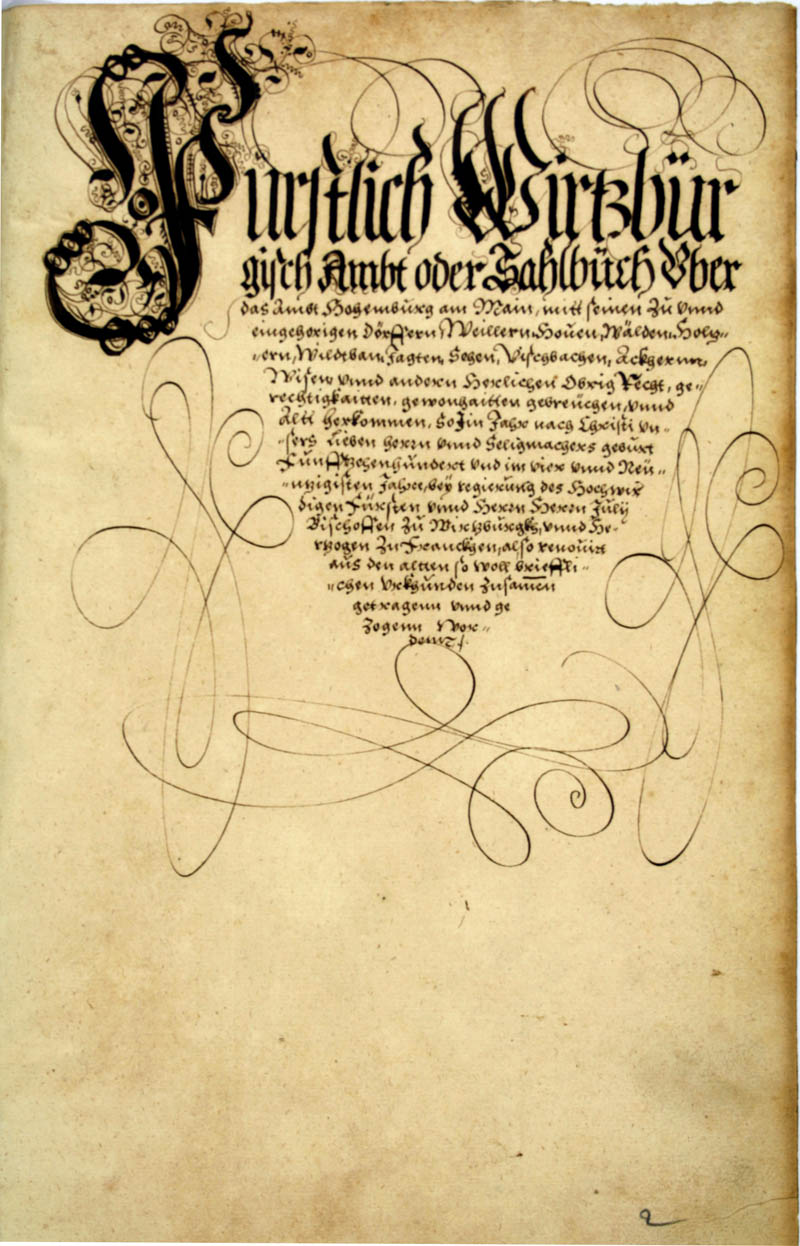 Fürstlich Wirtzbür
gisch Ambt oder Sahlbüch Vber
das Ambt Hohemburg am Main, mitt seinen Zu vnnd
eingehörigen dörffern, Weillern, Houen, Wälden, Höltz-
ern, Wildtban, Jagten, Sehen, Vischbachen, Ackhernn,
Wisen, vnnd andern Herlichen Obrig Recht, ge-
rechtigkaitten, gewonhaitten gebreüchen, vnnd
Altt herkommen, So Jm Jahr nach Christi vn-
sers lieben herrn vnnd Seligmachers gebürt
Fünfftzehenhundert vnd im vier vnnd Neü-
ntzigisten Jahre, bey regierung des Hochwir
digen Fürsten vnnd Herrn Herrn Julÿ
Bischoffen Zu Wirtzburgkh, vnnd He-
rtzogen Zu Franckhen, also renouirt
aus den altten so woll briefli-
chen vrkhunden Zusamen
getragenn vnnd ge
Zogenn Wor-
denn
2